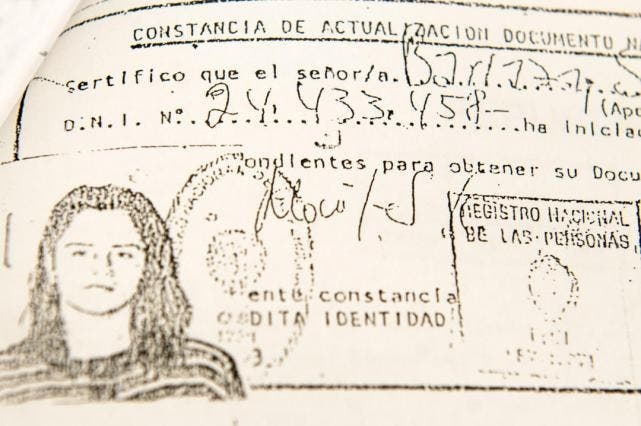 CONSTANCIA DE ACTUALIZACION DOCUMENTO NA
certifico que el señor/a.
(Apu
D.N.I. Nº. 24.433.458- ha inicia
ondientes para obtener su Docu
REGISTRO NACIONAL
DE LAS PERSONAS
ente constancia
DITA IDENTIDAD
3.